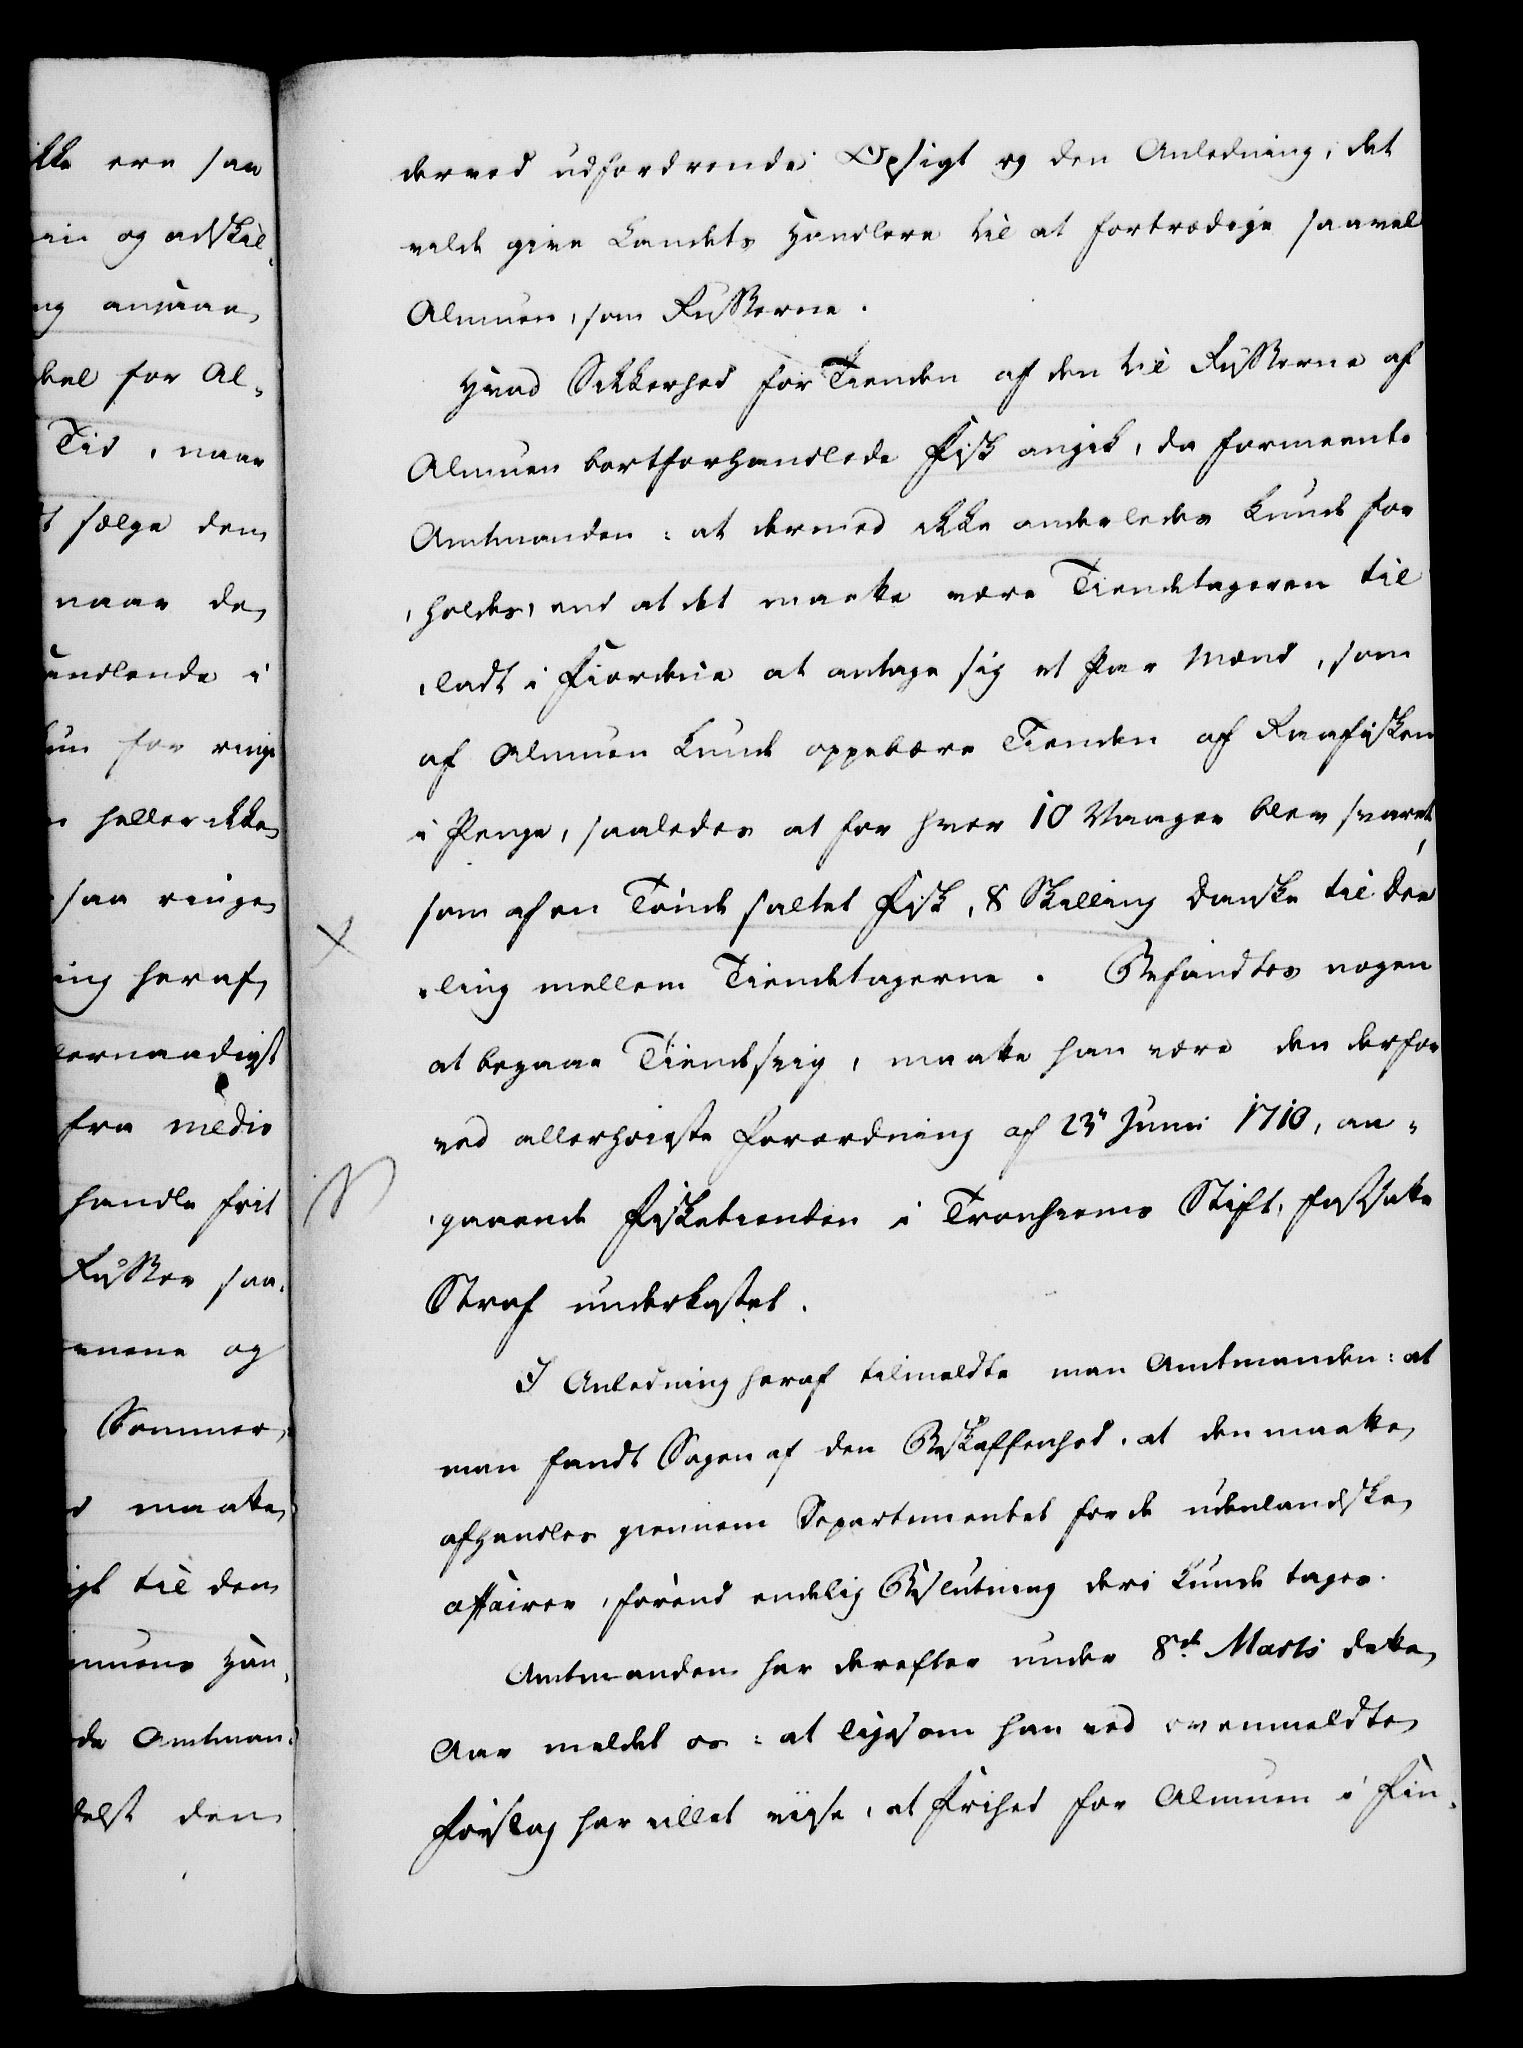 kke ere saa
ein og adskil-
ng ansaae
bel for Al-
Tid, naar
t sælge dem
naar de
andlende i
kun for ringe
n heller ikke
saa ringe
ing heraf
lernaadigst
fra medio
handle frit
Russer saa-
enene og
Sommer-
d maatte
igt til den
muens Han-
de Amtman-
delst den
derved udfordrende Opsigt og den Anledning, det
vilde give Landets Handlere til at fortrædige saavel
Almuen, som Russerne.
Hvad Sikkerhed for Tienden af den til Russerne af
Almuen bortforhandlede Fisk angik, da formeente
Amtmanden: at dermed ikke anderledes kunde for-
holdes, end at det maatte være Tiendetageren til-
ladt i Fiordene at antage sig et Par Mænd, som
af Almuen kunde oppebære Tienden af Raafisken
i Penge, saaledes at for hver 10 Vaager blev svaret,
som af en Tønde saltet Fisk, 8 Skilling danske til Dee-
ling mellem Tiendetagerne. Befandtes nogen
at begaae Tiendesvig, maatte han være den derfor
ved allerhøieste Forordning af 23de Junii 1710, an-
gaaende Fisketienden i Tronhiems Stift, fastsatte
Straf underkastet.
I Anledning heraf tilmeldte man Amtmanden: at
man fandt Sagen af den Beskaffenhed, at den maatte
afhandles giennem Departementet for de udenlandske
Affairer, førend endelig Beslutning deri kunde tages.
Amtmanden har derefter under 8de Marti dette
Aar meldet os: at ligesom han ved ovenmeldte
Forslag har villet viise, at Frihed for Almuen i Fin-